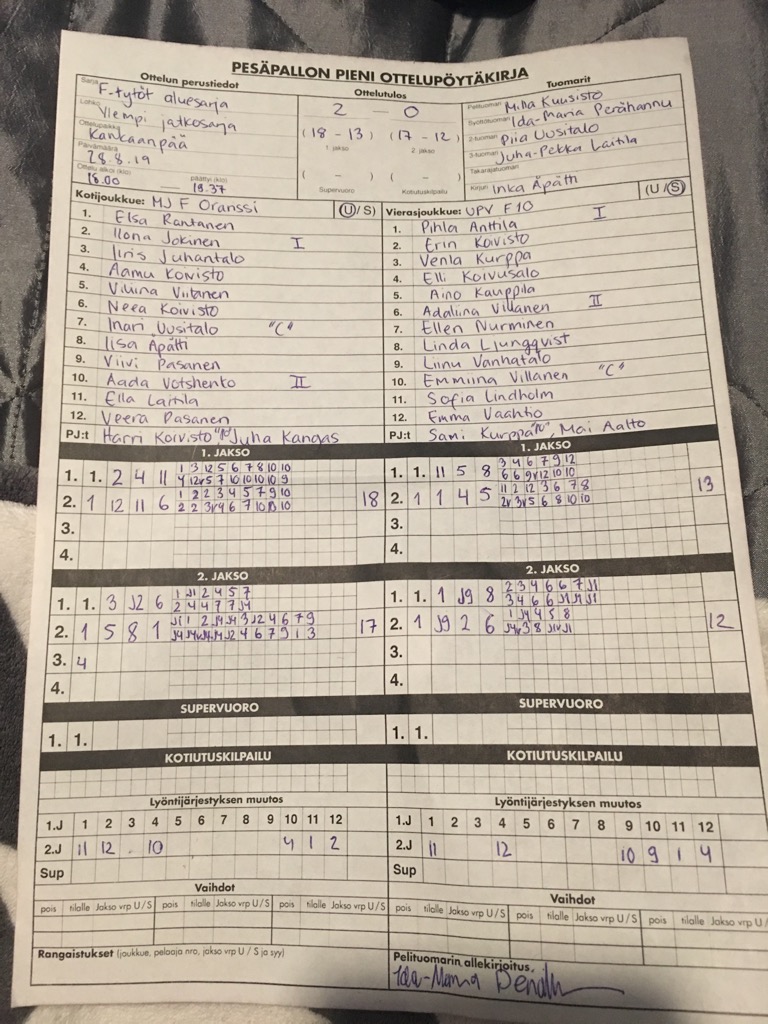 PESÄPALLON PIENI OTTELUPÖYTÄKIRJA
Ottelun perustiedot
Ottelutulos
Tuomarit
Sarja F-tytöt aluesarja
Lohko Ylempi jatkosarja
Ottelupaikka Kankaanpää
Päivämäärä 28.8.19
Ottelu alkoi (klo) 18.00 päättyi (klo) 19.37
2 - 0
(18 - 13) (17 - 12)
1. jakso 2. jakso
( - ) ( - )
Supervuoro Kotiutuskilpailu
Pelituomari Miha Kuusisto
Syöttötuomari Ida-Maria Perähannu
2-tuomari Piia Uusitalo
3-tuomari Juha-Pekka Laitila
Takarajatuomari
Kirjuri Inka Äpätti
Kotijoukkue: MJ F Oranssi (U/S)
1. Elsa Rantanen
2. Ilona Jokinen I
3. Iiris Juhantalo
4. Aamu Koivisto
5. Vilina Viitanen
6. Neea Koivisto
7. Inari Uusitalo "C"
8. Iisa Äpätti
9. Viivi Pasanen
10. Aada Votshenko II
11. Ella Laitila
12. Veera Pasanen
PJ:t Harri Koivisto Juha Kangas
Vierasjoukkue: UPV F10 (U/S)
1. Pihla Anttila I
2. Erin Koivisto
3. Venla Kurppa
4. Elli Koivusalo
5. Aino Kauppila
6. Adaliina Villanen II
7. Ellen Nurminen
8. Linda Ljungqvist
9. Liinu Vanhatalo
10. Emmiina Villanen "C"
11. Sofia Lindholm
12. Emma Vaahtio
PJ:t Sami Kurppa Mai Aalto
1. JAKSO
1. 1. 2 4 11 1 3 12 5 6 7 8 10 10
2. 1 12 11 6 1 2 2 3 4 5 7 9 10
18
3.
4.
1. JAKSO
1. 1. 11 5 8 3 4 6 7 9 12
2. 1 1 4 5 11 2 12 3 6 7 8
13
3.
4.
2. JAKSO
1. 1. 3 J2 6 1 J1 2 4 5 7
2 4 4 7 7 J4
2. 1 5 8 1
17
3. 4
4.
2. JAKSO
1. 1. 1 J9 8 2 3 4 6 6 7 J1
3 4 6 6 J1 J1 J1
2. 1 J9 2 6 1 J4 4 5 8
12
3.
4.
SUPERVUORO
1. 1.
SUPERVUORO
1. 1.
KOTIUTUSKILPAILU
KOTIUTUSKILPAILU
Lyöntijärjestyksen muutos
1.J 1 2 3 4 5 6 7 8 9 10 11 12
2.J 11 12 10 4 1 2
Sup
Lyöntijärjestyksen muutos
1.J 1 2 3 4 5 6 7 8 9 10 11 12
2.J 11 12 10 9 1 4
Sup
Vaihdot
pois tilalle Jakso vrp U/S pois tilalle Jakso vrp U/S pois tilalle Jakso vrp U/S
Vaihdot
pois tilalle Jakso vrp U/S pois tilalle Jakso vrp U/S pois tilalle Jakso vrp U/S
Rangaistukset (joukkue, pelaaja nro, jakso vrp U / S ja syy)
Pelituomarin allekirjoitus